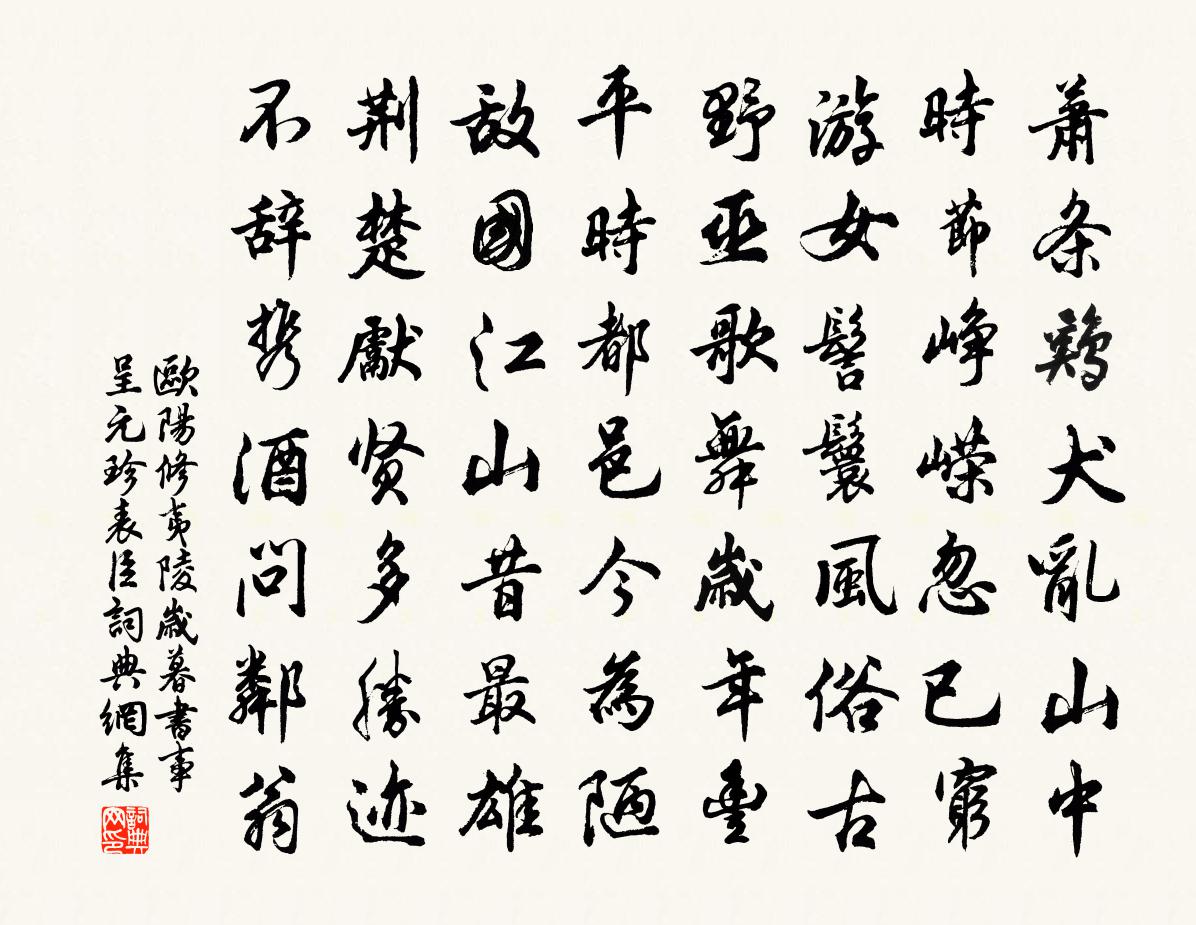 蕭条鷄犬亂山中
時節峥嵘忽已窮
游女髻鬟風俗古
野巫歌舞歲年豐
平時都邑今為陋
敌國江山昔最雄
荆楚獻贤多勝迹
不辞携酒問鄰翁
歐陽修夷陵歲暮書事
呈元珍表臣詞典網集
詞典网印